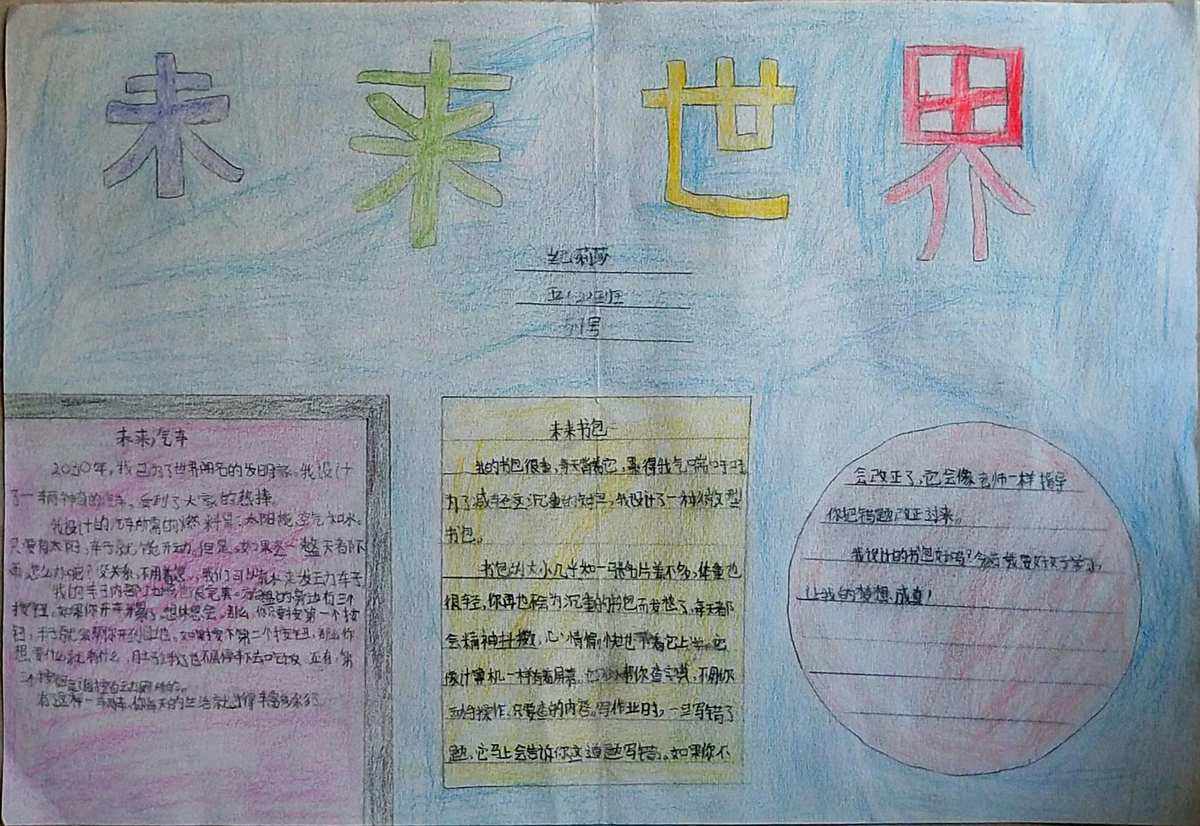 未来世界
纪莉莎
五(2)班
51号
未来汽车
2030年,我已成了世界闻名的发明家。我设计
了一辆神奇的汽车,受到了大家的热捧。
我设计的汽车所需的燃料是:太阳能、空气和水。
只要有太阳,车子就能开动。但是,如果这一整天都下
雨,怎么办呢?没关系,不用着急,我们可以靠水来发动车子
我的车子内部设
的旁边有三个
按钮,如果你开车累了,想休息会,那么,你只要按第一个按
钮,车子就会帮你开到
第二个按钮,那么你
想要什么就有什么,
还有,第
三个按钮
有这样一辆车,你每天的生活就
未来书包
我的书包很重,每天背着它,累得我气喘吁吁
为了减轻这沉重的
,我设计了一种微型
书包。
书包的大小几乎和一张名片差不多,体重也
很轻,你再也不会为沉重的书包而发愁了,每天都
会精神抖擞,心情愉快地背着它上学。它
像计算机一样有着屏幕,它
帮你查字典,不用你
动手操作,只要
的内容。写作业时,一旦写错了
题,它马上会告诉你这道题写错了。如果你不
会改正了,它会像老师一样指导
你把错题改正过来。
我设计的书包好吗?今后我要好好学习,
让我的梦想成真!